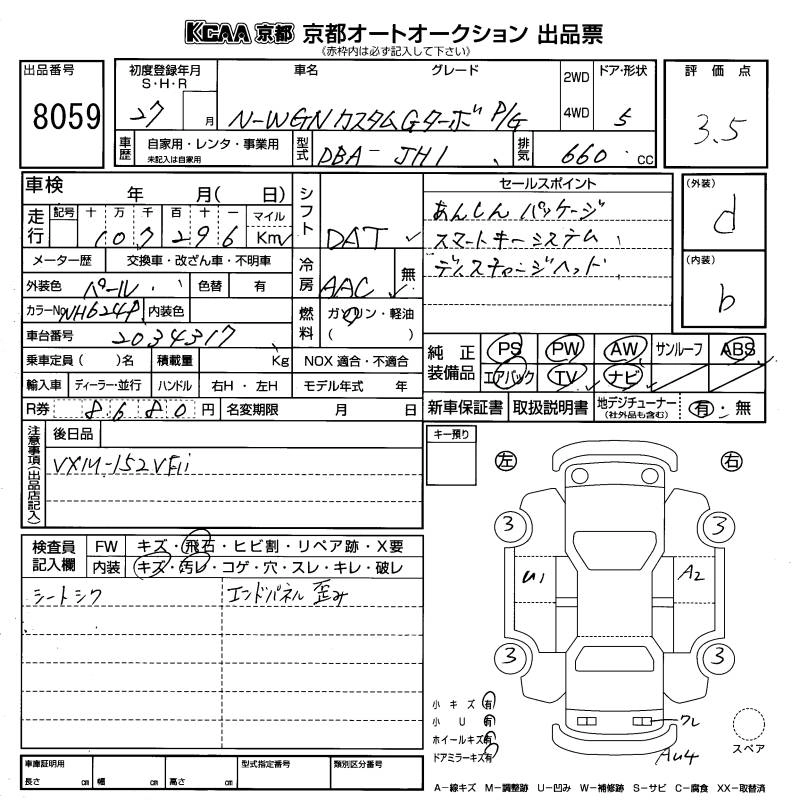 KCAA 京都 京都オートオークション 出品票
(赤枠内は必ず記入して下さい)
出品番号
8059
初度登録年月
S・H・R
27 月
車名 グレード
N-WGN カスタムGターボ P/G
2WD
4WD
ドア・形状
5
評価点
3.5
車歴
自家用・レンタ・事業用
未記入は自家用
型式
DBA-JH1
排気
660 CC
車検 年 月( 日)
走行
記号 十 万 千 百 十 一 マイル
107296 Km
メーター歴 交換車・改ざん車・不明車
外装色 パール 色替 有
カラーNo NH624P 内装色
車台番号 2034317
乗車定員( )名 積載量 Kg
輸入車 ディーラー・並行 ハンドル 右H・左H
R券 8680 円 名変期限 月 日
シフト
DAT
冷房
AAC 無
燃料
ガソリン・軽油
( )
NOX 適合・不適合
モデル年式 年
セールスポイント
あんしんパッケージ
スマートキーシステム
ディスチャージヘッド
(外装)
d
(内装)
b
純正装備品
PS PW AW サンルーフ ABS
エアバック TV ナビ
新車保証書 取扱説明書 地デジチューナー (社外品も含む) 有・無
注意事項(出品店記入)
後日品
VXM-152VFi
キー預り
左 右
検査員記入欄
FW キズ・飛石・ヒビ割・リペア跡・X要
内装 キズ・汚レ・コゲ・穴・スレ・キレ・破レ
シートシワ
エンドパネル歪み
3 3
U1 A2
3 3
小キズ 有
小U 有
ホイールキズ 有
ドアミラーキズ 有
ワレ
AU4
スペア
車庫証明用
長さ cm 幅 cm 高さ cm
型式指定番号 類別区分番号
A-線キズ M-調整跡 U-凹み W-補修跡 S-サビ C-腐食 XX-取替済